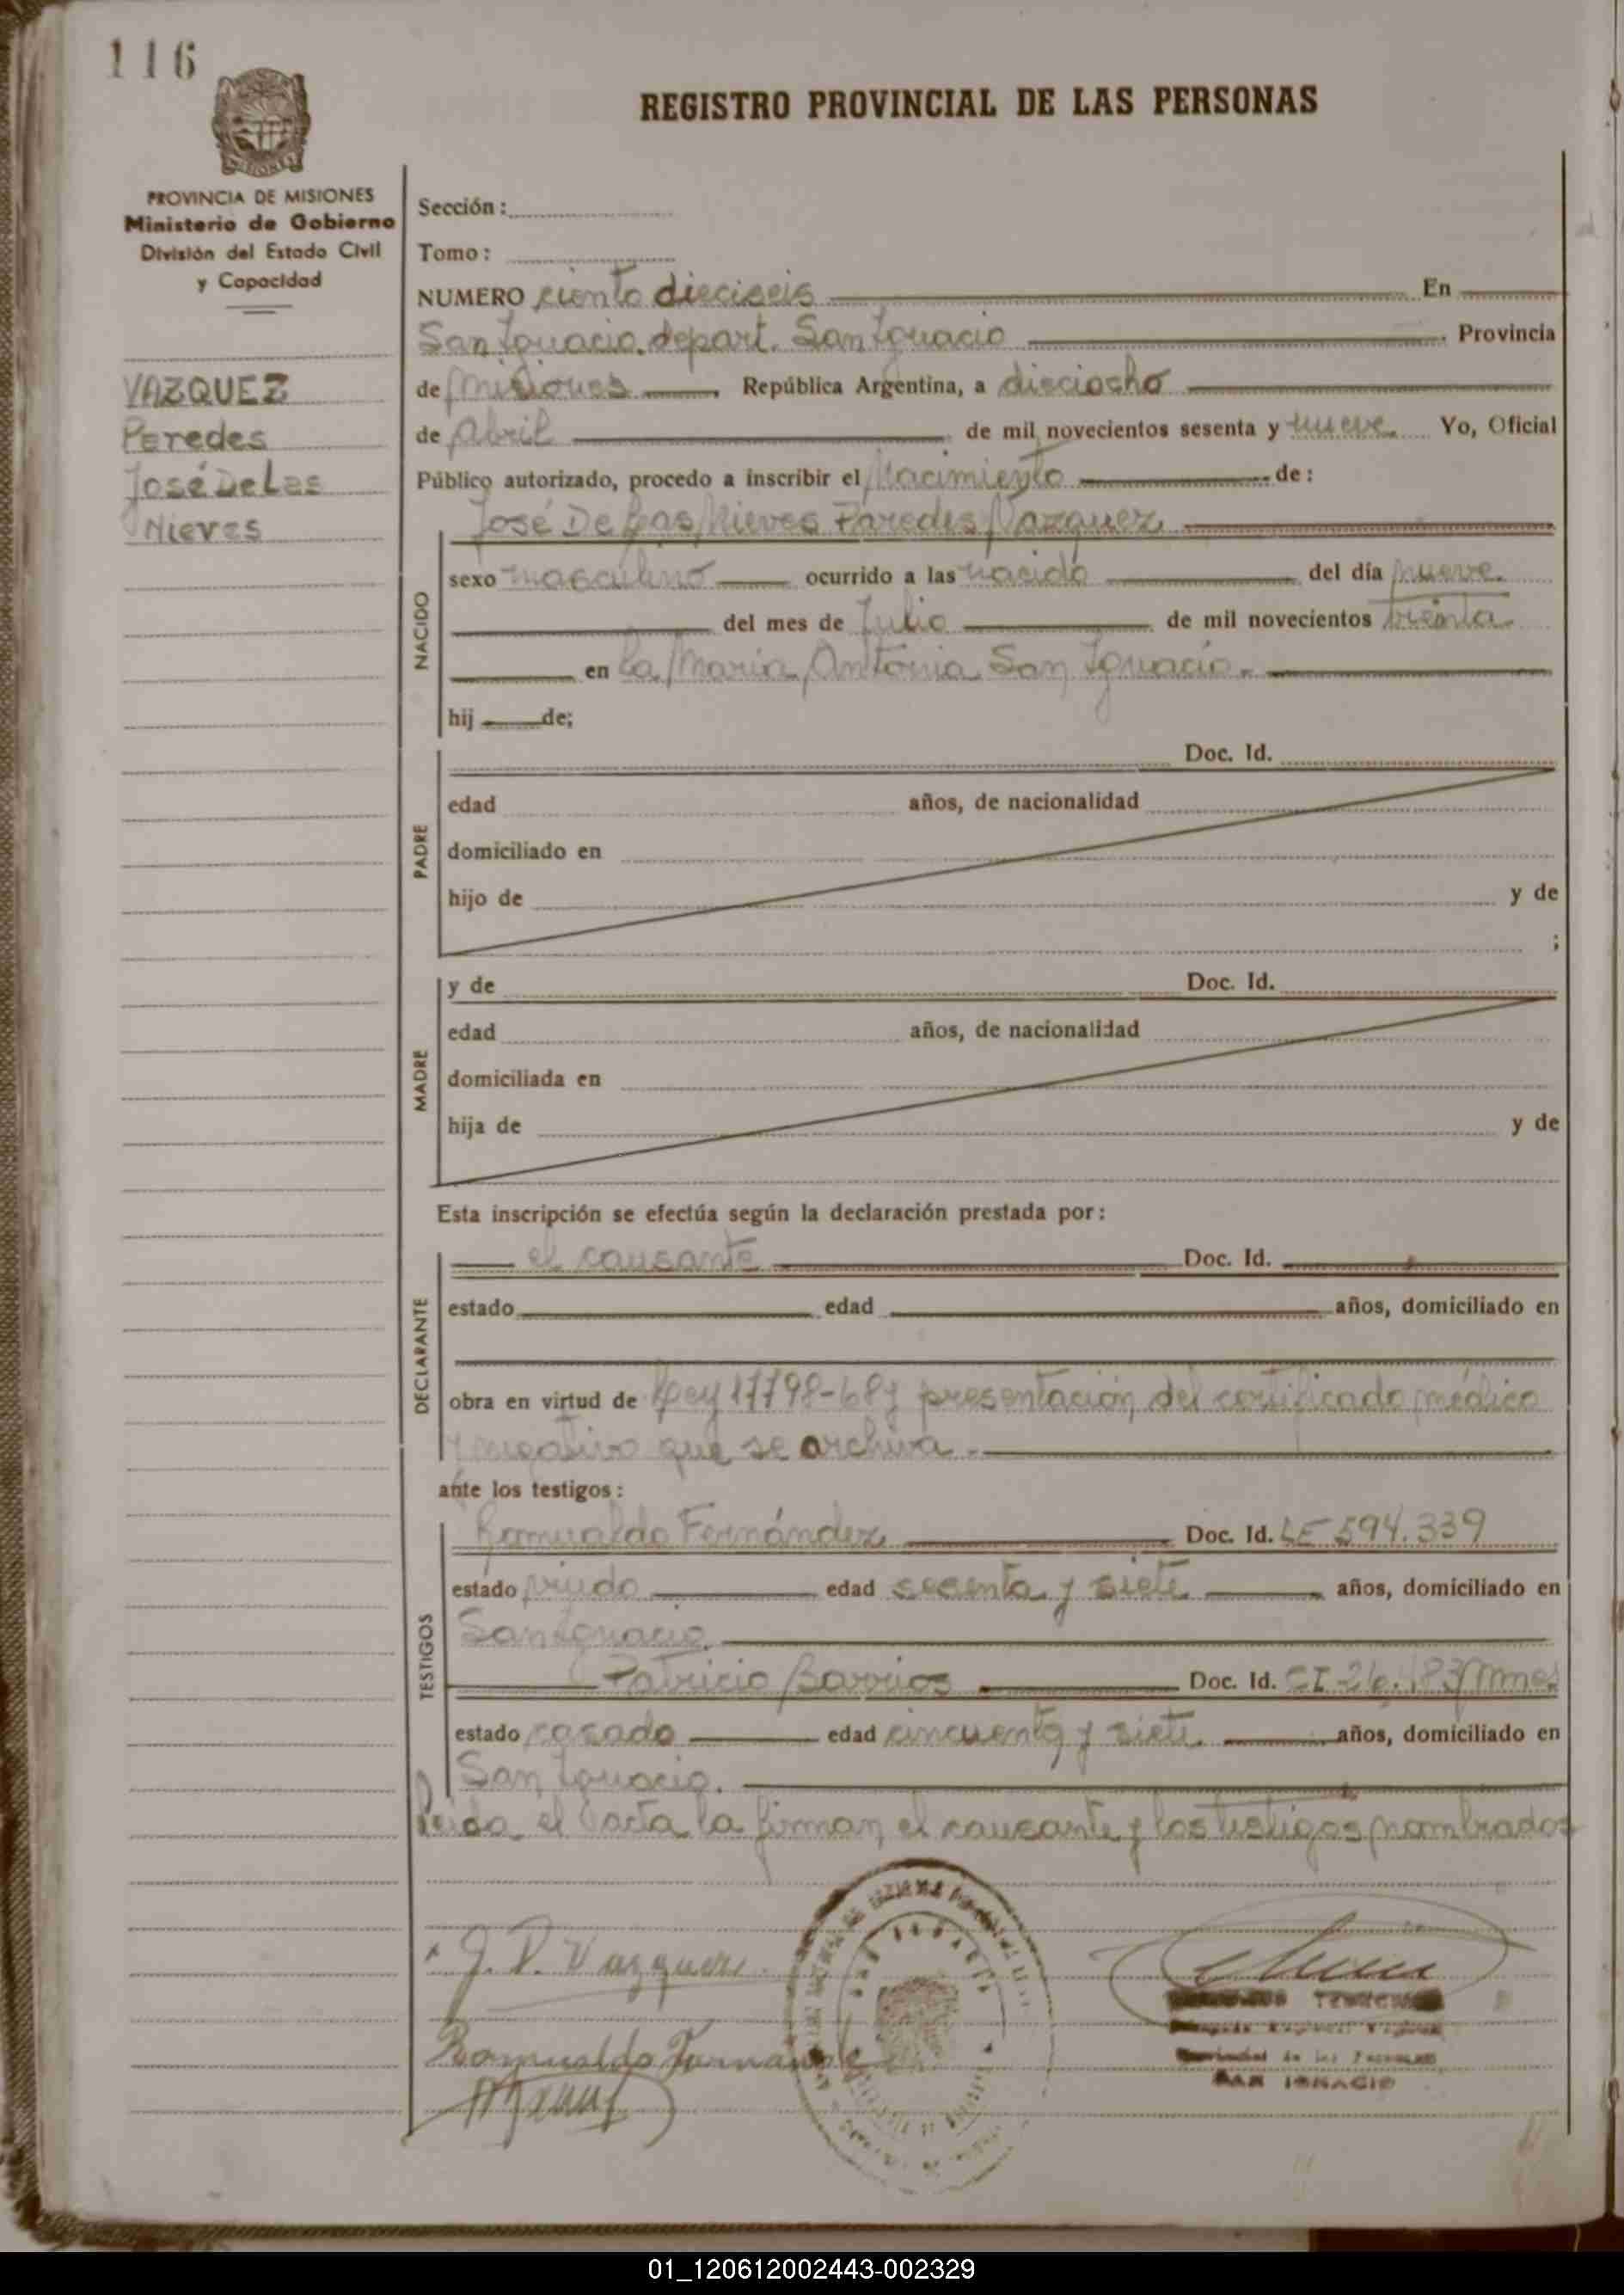 116
REGISTRO PROVINCIAL DE LAS PERSONAS
PROVINCIA DE MISIONES
Ministerio de Gobierno
División del Estado Civil
y Capacidad
VAZQUEZ
Paredes
José De Las
Nieves
Sección:
Tomo:
NUMERO ciento dieciseis En
San Ignacio, depart. San Ignacio Provincia
de Misiones República Argentina, a dieciocho
de Abril de mil novecientos sesenta y nueve. Yo, Oficial
Público autorizado, procedo a inscribir el Nacimiento de:
José De Las Nieves Paredes Vazquez
NACIDO
sexo masculino ocurrido a las nacido del día nueve.
del mes de Julio de mil novecientos treinta
en La Maria Antonia San Ignacio.-
hij de;
PADRE
Doc. Id.
edad años, de nacionalidad
domiciliado en
hijo de y de
;
MADRE
y de Doc. Id.
edad años, de nacionalidad
domiciliada en
hija de y de
Esta inscripción se efectúa según la declaración prestada por:
DECLARANTE
el causante Doc. Id.
estado edad años, domiciliado en
obra en virtud de Ley 17798-68 y presentación del certificado médico
y negativo que se archiva.-
ante los testigos:
TESTIGOS
Romualdo Fernández Doc. Id. LE 594.339
estado viudo edad sesenta y siete años, domiciliado en
San Ignacio
Patricio Barrios Doc. Id. CI 26.183
estado casado edad cincuenta y siete. años, domiciliado en
San Ignacio.
Leida el acta la firman el causante y los testigos nombrados
J. P. Vazquez
Romualdo Fernandez
SAN IGNACIO
01_120612002443-002329